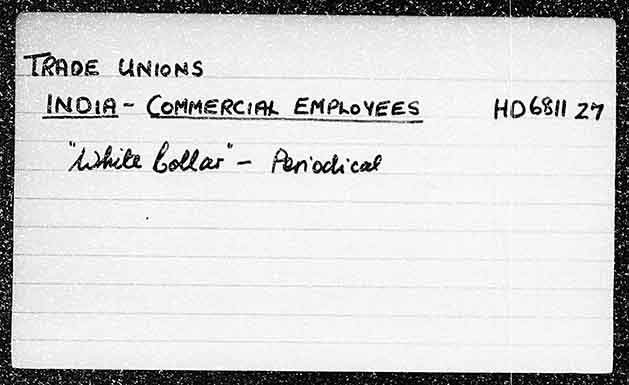 TRADE UNIONS
INDIA - COMMERCIAL EMPLOYEES HD6811 Z7
"White Collar" - Periodical